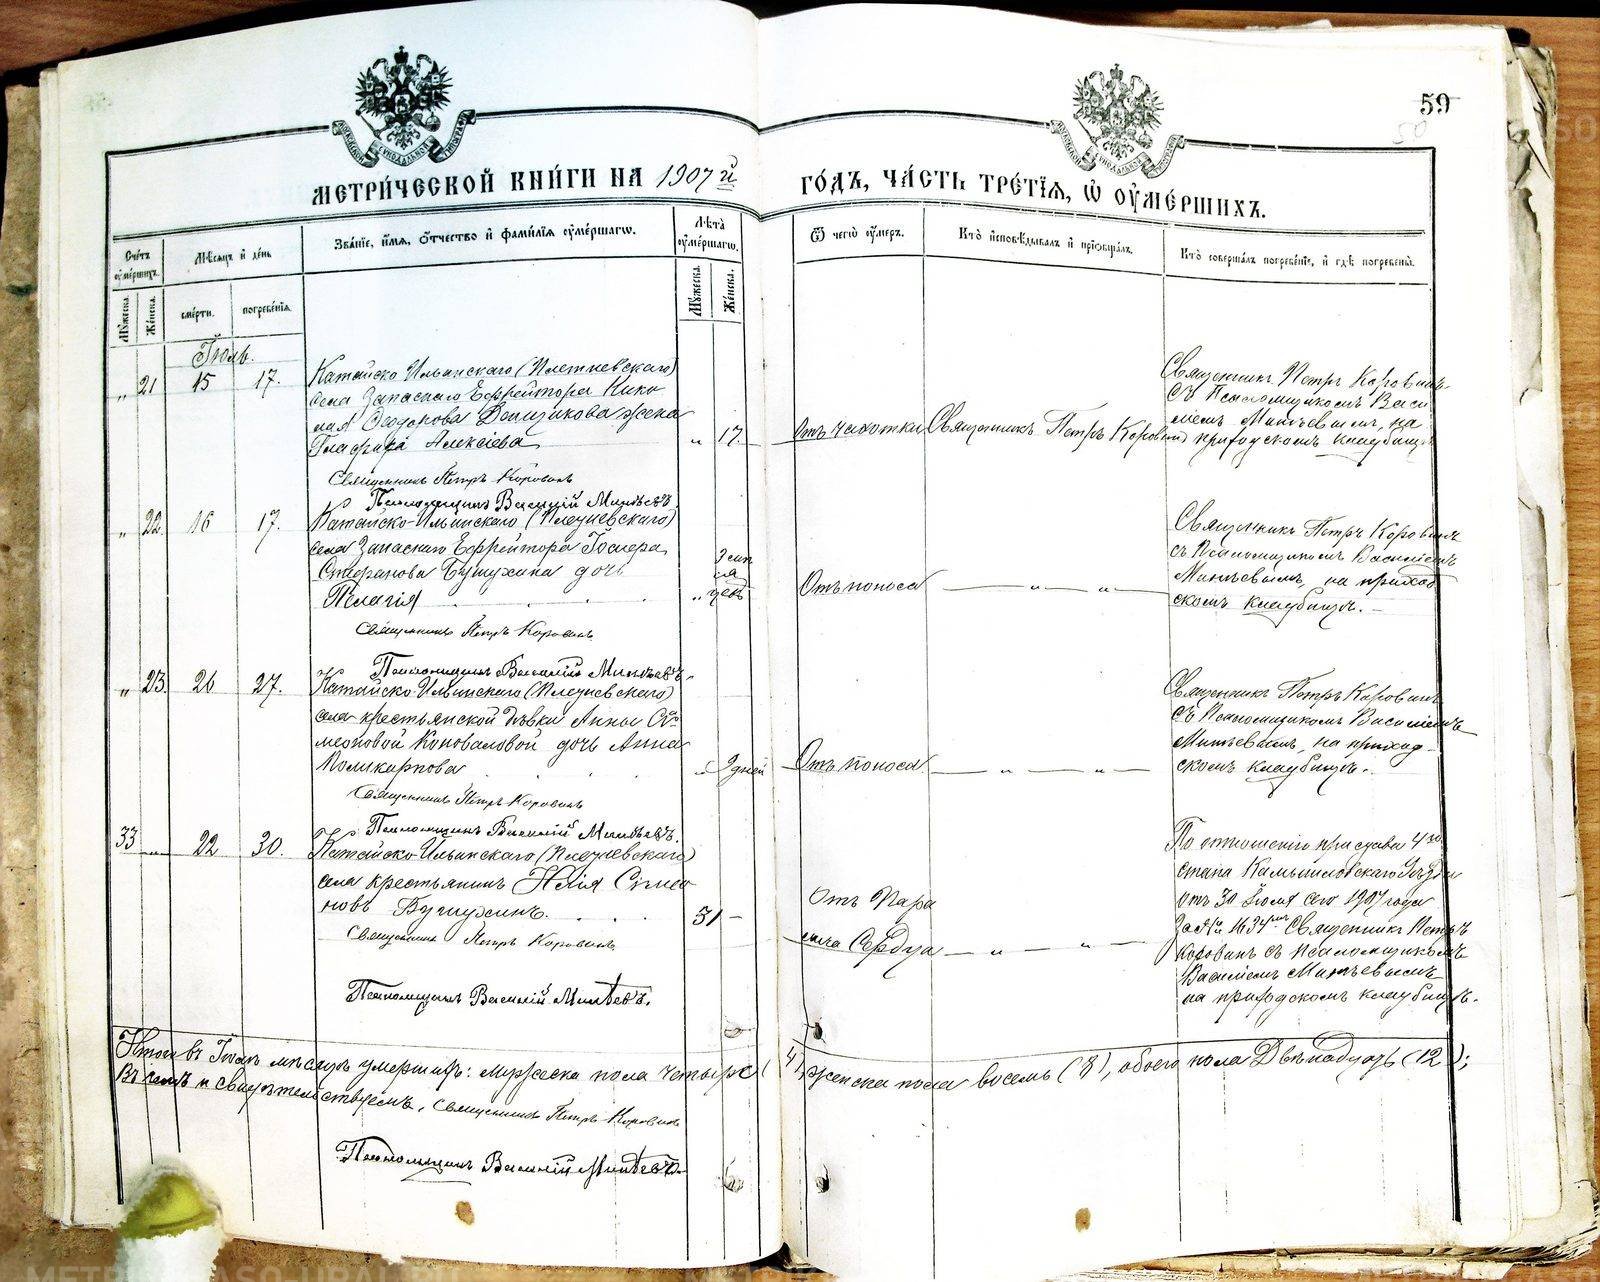 59
50
МЕТРИЧЕСКОЙ КНИГИ НА 1907 й ГОДЪ, ЧАСТЬ ТРЕТІЯ, Ѡ ОУМЕРШИХЪ.
Счетъ оумершихъ.
Мѣсяцъ и день
Званіе, имя, отчество и фамилія оумершагѡ.
Лѣта оумершагѡ.
Ѿ чегѡ оумеръ.
Кто исповѣдывалъ и пріобщалъ.
Кто совершалъ погребеніе, и гдѣ погребены.
Мужеска.
Женска.
смерти.
погребенія.
Мужеска.
Женска.
Іюль.
„ 21 15 17.
Катайско Ильинскаго (Плетневскаго)
села Запаснаго Ефрейтора Нико
лая Ѳеодорова жена
Глафира Алексіева
„ 17.
Отъ чахотки
Священникъ Петръ Коровинъ
Священникъ Петръ Коровинъ
съ Псаломщикомъ Васи
ліемъ Митѣевымъ, на
приходскомъ кладбищѣ
Священникъ Петръ Коровинъ
Псаломщикъ Василій Митѣевъ.
„ 22. 16 17.
Катайско-Ильинскаго (Плетневскаго)
села Запаснаго Ефрейтора
Стефанова Бушухина дочь
Пелагія
Отъ поноса
— „ — „ —
Священникъ Петръ Коровинъ
съ Псаломщикомъ Василіемъ
Митѣевымъ, на приход
скомъ кладбищѣ.
Священникъ Петръ Коровинъ
Псаломщикъ Василій Митѣевъ.
„ 23. 26 27.
Катайско-Ильинскаго (Плетневскаго)
села крестьянской дѣвки Анны Си
меоновой Коноваловой дочь Анна
Поликарпова
„ 9 дней
Отъ поноса
— „ — „ —
Священникъ Петръ Коровинъ
съ Псаломщикомъ Василіемъ
Митѣевымъ, на приход
скомъ кладбищѣ.
Священникъ Петръ Коровинъ
Псаломщикъ Василій Митѣевъ.
33 „ 22 30.
Катайско-Ильинскаго (Плетневскаго)
села крестьянинъ Илія Симео
новъ Бушухинъ.
31 —
Отъ Пара
лича Сердца
— „ — „ —
По отношенію пристава 4го
стана Камышловскаго Уѣзда
отъ 30 Іюля сего 1907 года
за № 1634 Священникъ Петръ
Коровинъ съ псаломщикомъ
Василіемъ Митѣевымъ
на приходскомъ кладбищѣ.
Священникъ Петръ Коровинъ
Псаломщикъ Василій Митѣевъ.
Итого въ Іюлѣ мѣсяцѣ умершихъ: мужеска пола четыре (4), женска пола восемь (8), обоего пола Двѣнадцать (12);
Въ чемъ и свидѣтельствуемъ, Священникъ Петръ Коровинъ
Псаломщикъ Василій Митѣевъ.